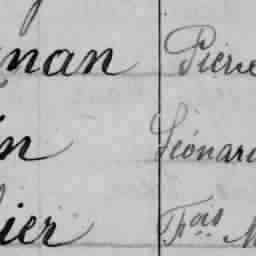 nan Pierre
in Léonard
ier Fçois M